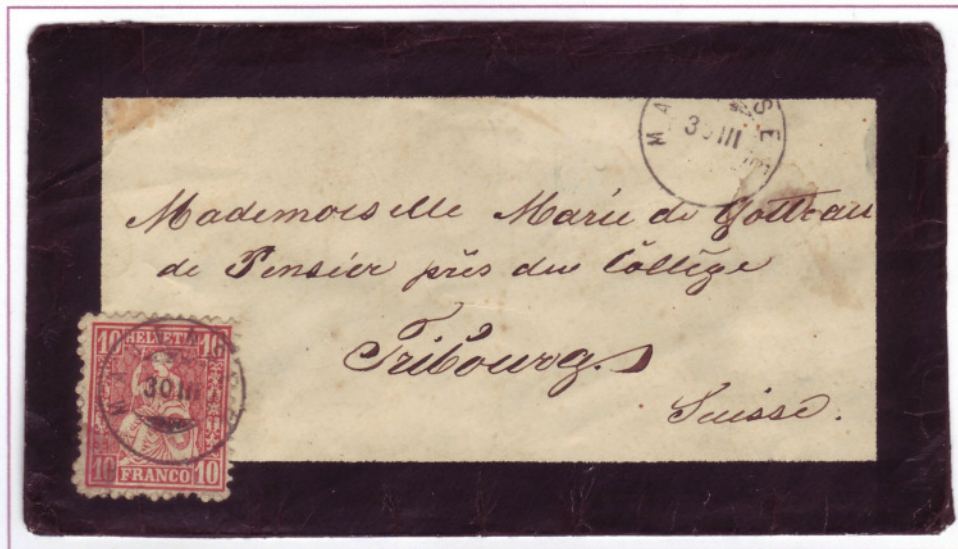 30 III
Mademoiselle Marie de Gottrau
de Pensier près du Collège
Fribourg.
Suisse.
10 HELVETIA 10
30 III
10 FRANCO 10